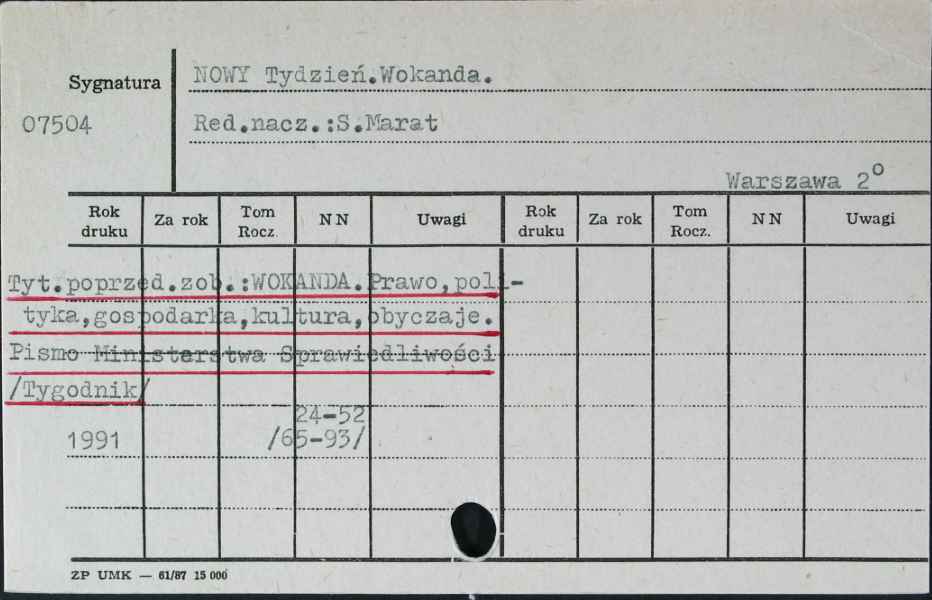 Sygnatura
NOWY Tydzień.Wokanda.
07504
Red.nacz.:S.Marat
Warszawa 2°
Rok druku Za rok Tom Rocz. NN Uwagi Rok druku Za rok Tom Rocz. NN Uwagi
Tyt.poprzed.zob.:WOKANDA.Prawo,poli-
tyka,gospodarka,kultura,obyczaje.
Pismo Ministerstwa Sprawiedliwości
/Tygodnik/
24-52
1991 /65-93/
ZP UMK — 61/87 15 000